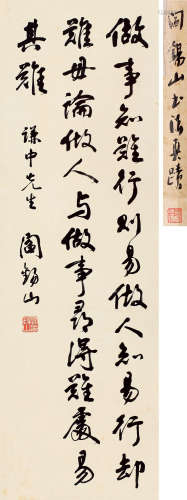 做事知難行則易做人知易行卻
難毋論做人與做事尋得難處易
其難
謙中先生 閻錫山
閻錫山書法真蹟